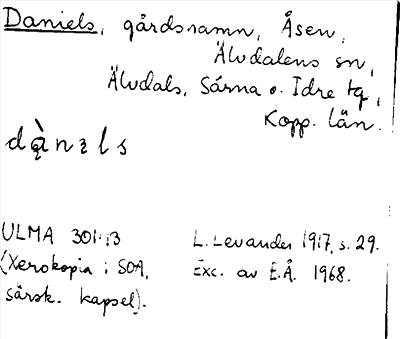 Daniels, gårdsnamn, Åsen,
Älvdalens sn,
Älvdals, Särna o. Idre tg,
Kopp. län.
dà̱nɿls
ULMA 301:13
(Xerokopia i SOA,
särsk. kapsel).
L. Levander 1917, s. 29.
Exc. av E.Å. 1968.